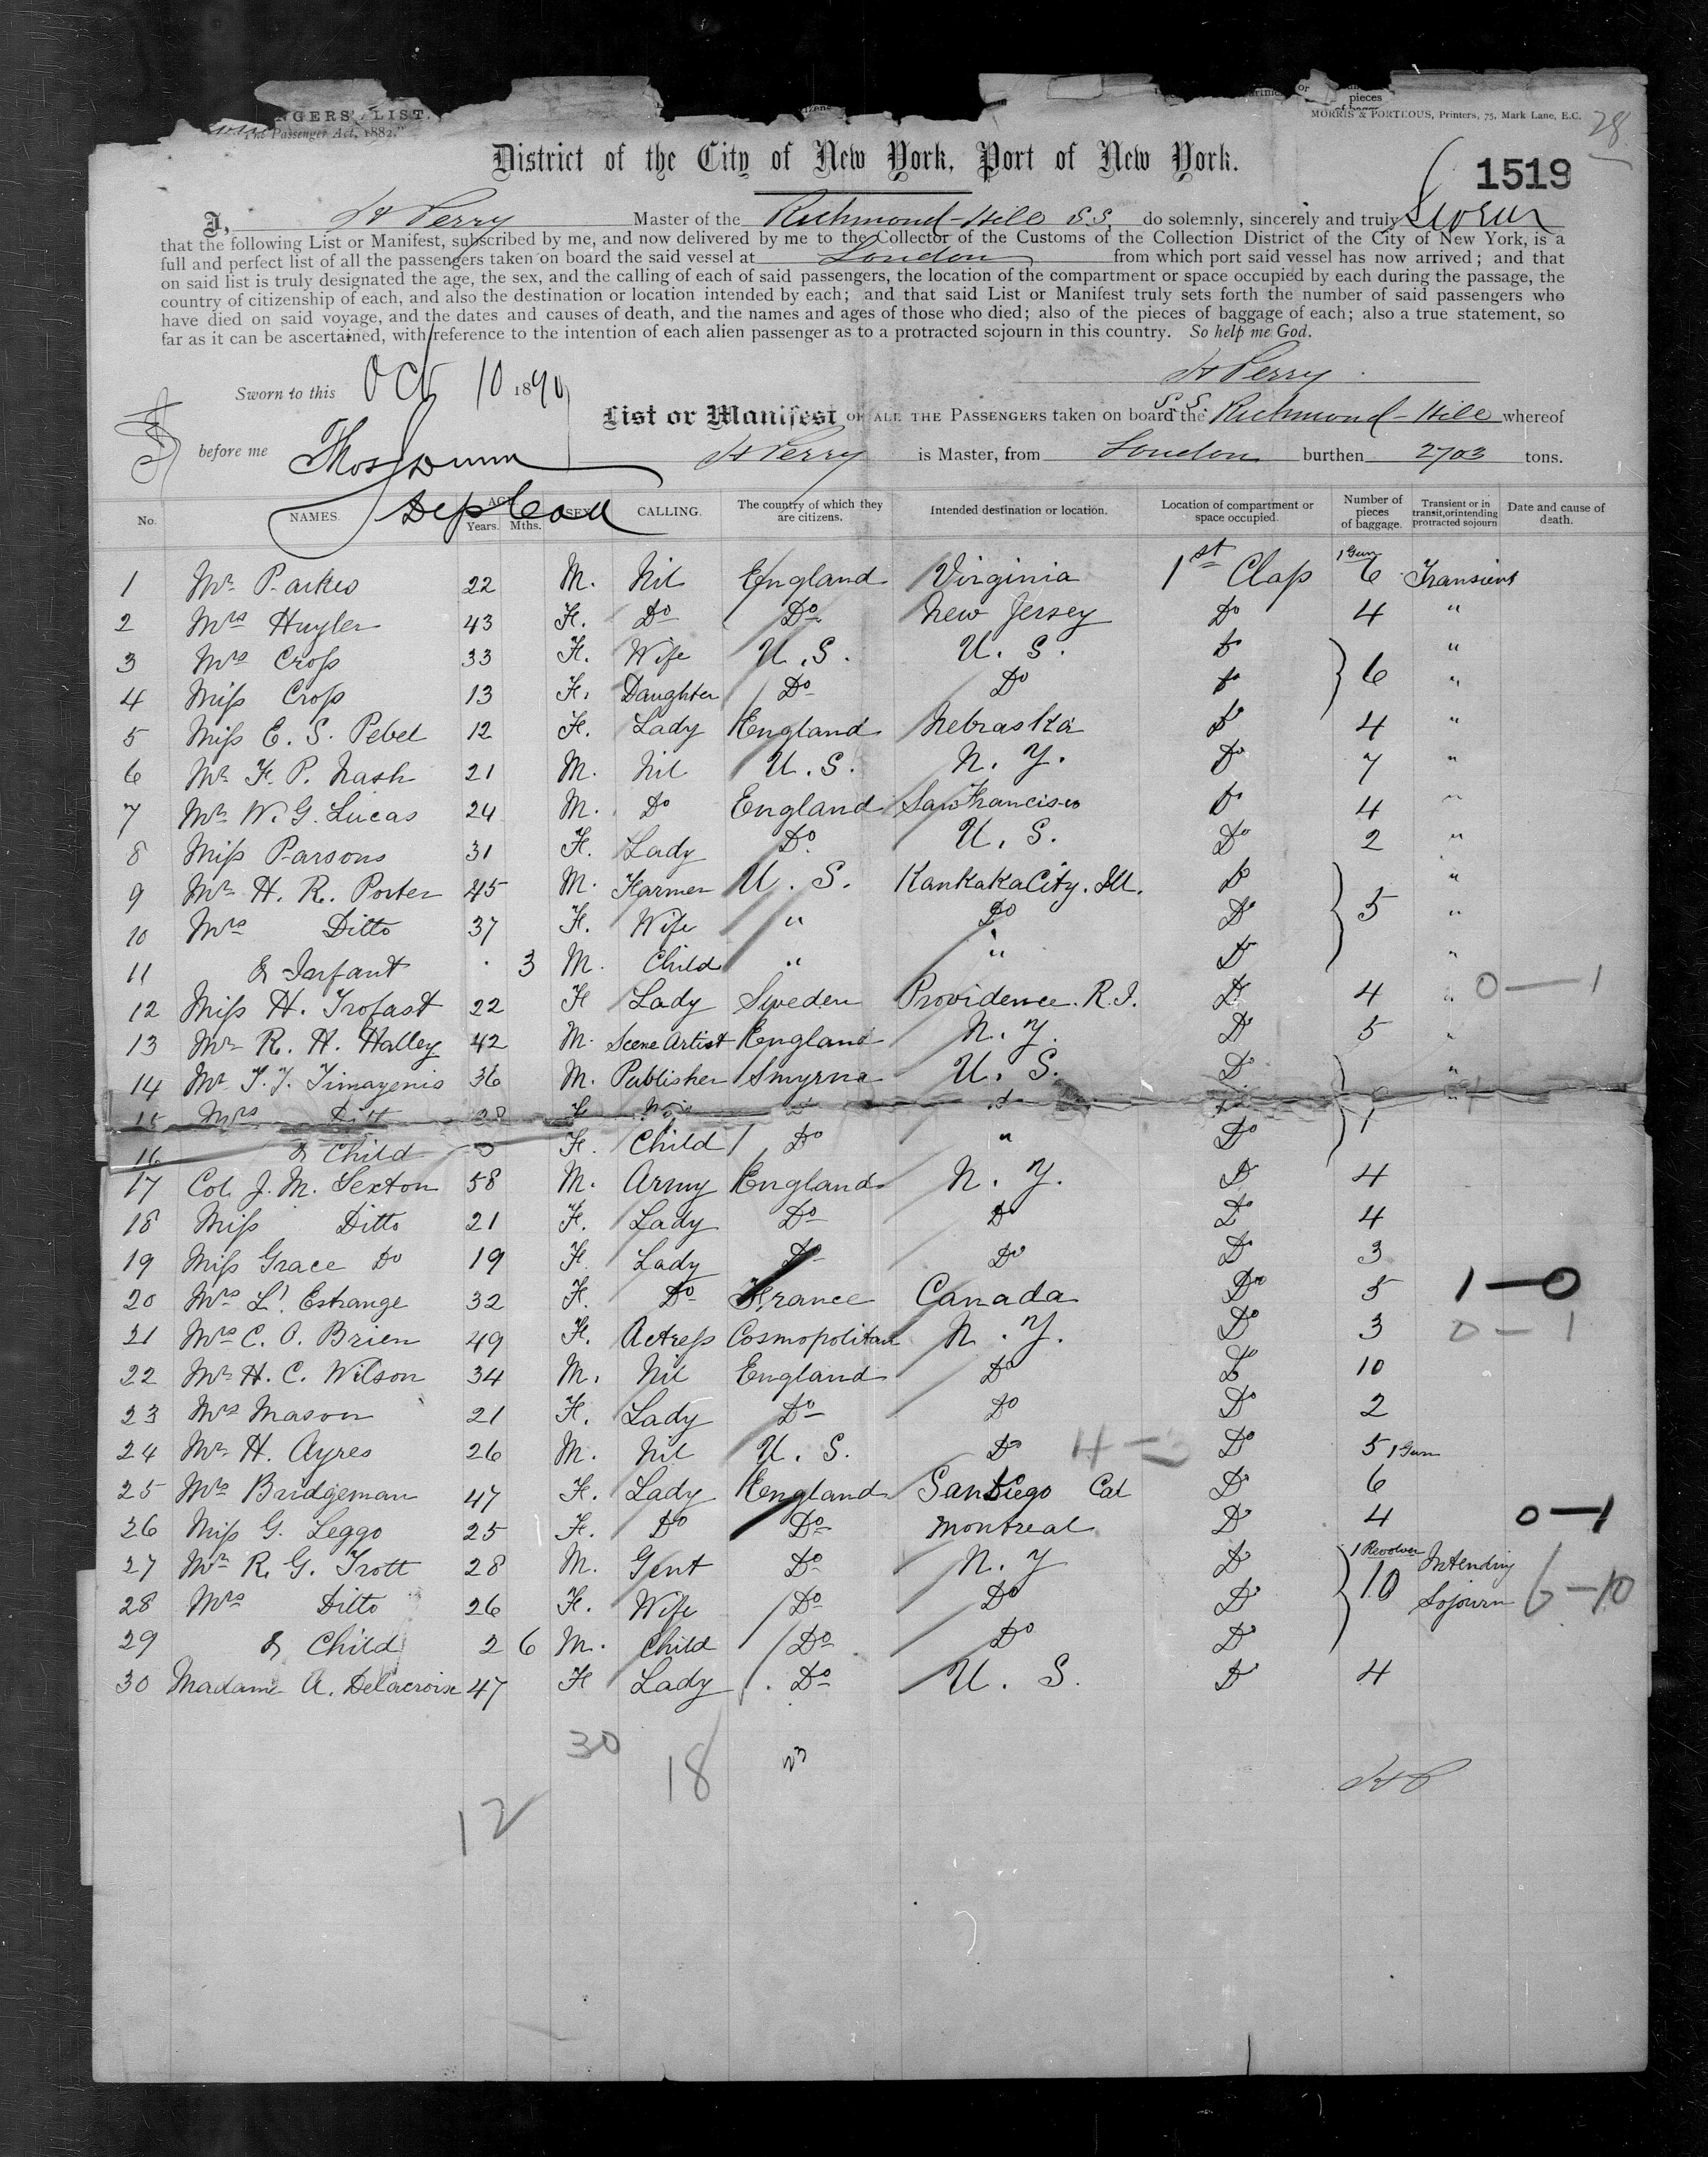 NGERS' LIST.
"The Passenger Act, 1882."
pieces
MORRIS & PORTEOUS, Printers, 75, Mark Lane, E.C.
28
District of the City of New York, Port of New York.
1519
I, H Perry Master of the Richmond-Hill S.S. do solemnly, sincerely and truly Swear
that the following List or Manifest, subscribed by me, and now delivered by me to the Collector of the Customs of the Collection District of the City of New York, is a
full and perfect list of all the passengers taken on board the said vessel at London from which port said vessel has now arrived; and that
on said list is truly designated the age, the sex, and the calling of each of said passengers, the location of the compartment or space occupied by each during the passage, the
country of citizenship of each, and also the destination or location intended by each; and that said List or Manifest truly sets forth the number of said passengers who
have died on said voyage, and the dates and causes of death, and the names and ages of those who died; also of the pieces of baggage of each; also a true statement, so
far as it can be ascertained, with reference to the intention of each alien passenger as to a protracted sojourn in this country. So help me God.
H Perry
Sworn to this Oct 10 1890
List or Manifest OF ALL THE PASSENGERS taken on board the S.S. Richmond-Hill whereof
before me Thos Dunn
H Perry is Master, from London burthen 2703 tons.
Dep Coll
No. NAMES. AGE Years. Mths. SEX CALLING. The country of which they are citizens. Intended destination or location. Location of compartment or space occupied. Number of pieces of baggage. Transient or in transit, or intending protracted sojourn Date and cause of death.
1 Mr. Parkes 22 M. Nil England Virginia 1st Class 1 Gun 6 Transient
2 Mrs Huyler 43 F. Do Do New Jersey Do 4 "
3 Mrs Cross 33 F. Wife U.S. U.S. Do "
4 Miss Cross 13 F. Daughter Do Do Do 6 "
5 Miss E. S. Pebel 12 F. Lady England Nebraska Do 4 "
6 Mr F. P. Nash 21 M. Nil U.S. N.Y. Do 7 "
7 Mr W. G. Lucas 24 M. Do England San Francisco Do 4 "
8 Miss Parsons 31 F. Lady Do U.S. Do 2 "
9 Mr H. R. Porter 45 M. Farmer U.S. Kankaka City. Ill. Do "
10 Mrs Ditto 37 F. Wife " Do Do 5 "
11 & Infant 3 M. Child " " Do "
12 Miss H. Trofast 22 F Lady Sweden Providence. R.I. Do 4 " 0-1
13 Mr R. H. Halley 42 M. Scene Artist England N.Y. Do 5 "
14 Mr T. T. Timayenis 36 M. Publisher Smyrna U.S. Do "
15 Mrs 28 F "
16 & Child F. Child Do " Do 1
17 Col. J. M. Sexton 58 M. Army England N.Y. Do 4
18 Miss Ditto 21 F. Lady Do Do Do 4
19 Miss Grace Do 19 F. Lady Do Do Do 3
20 Mrs L'. Estrange 32 F. Do France Canada Do 5 1-0
21 Mrs C. O. Brien 49 F. Actress Cosmopolitan N.Y. Do 3 0-1
22 Mr H. C. Wilson 34 M. Nil England Do Do 10
23 Mrs Mason 21 F. Lady Do Do Do 2
24 Mr H. Ayres 26 M. Nil U.S. Do Do 5 1 Gun
25 Mrs Bridgeman 47 F. Lady England San Diego Cal Do 6
26 Miss G. Leggo 25 F. Do Do Montreal Do 4 0-1
27 Mr R. G. Trott 28 M. Gent Do N.Y Do 1 Revolver Intending
28 Mrs Ditto 26 F. Wife Do Do Do 10 Sojourn 6-10
29 & Child 2 6 M. Child Do Do Do
30 Madame A. Delacroix 47 F Lady Do U.S. Do 4
30
18
23
HP
12